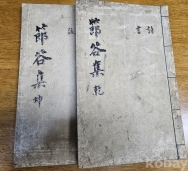 節谷集 乾
詩
書
節谷集 坤
Kobay